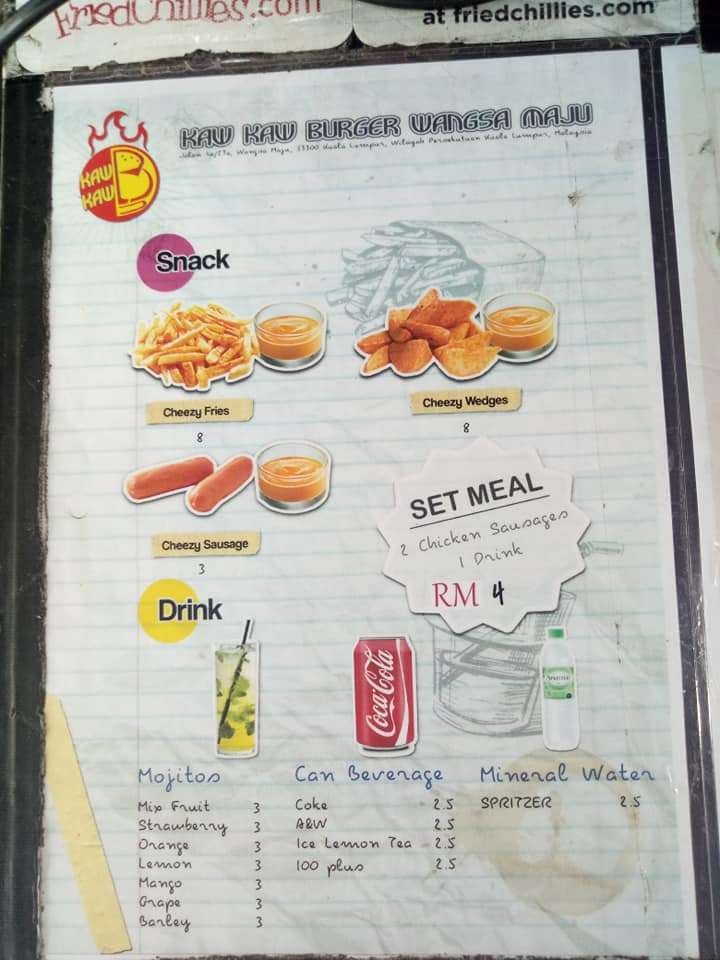 FriedChillies.com
at friedchillies.com
KAW KAW BURGER WANGSA MAJU
Jalan 4a/27a, Wangsa Maju, 53300 Kuala Lumpur, Wilayah Persekutuan Kuala Lumpur, Malaysia
KAW
KAW
B
Snack
Cheezy Fries
8
Cheezy Wedges
8
Cheezy Sausage
3
SET MEAL
2 Chicken Sausages
1 Drink
RM 4
Drink
Coca-Cola
Mojitos
Mix Fruit 3
Strawberry 3
Orange 3
Lemon 3
Mango 3
Grape 3
Barley 3
Can Beverage
Coke 2.5
A&W 2.5
Ice Lemon Tea 2.5
100 plus 2.5
Mineral Water
SPRITZER 2.5